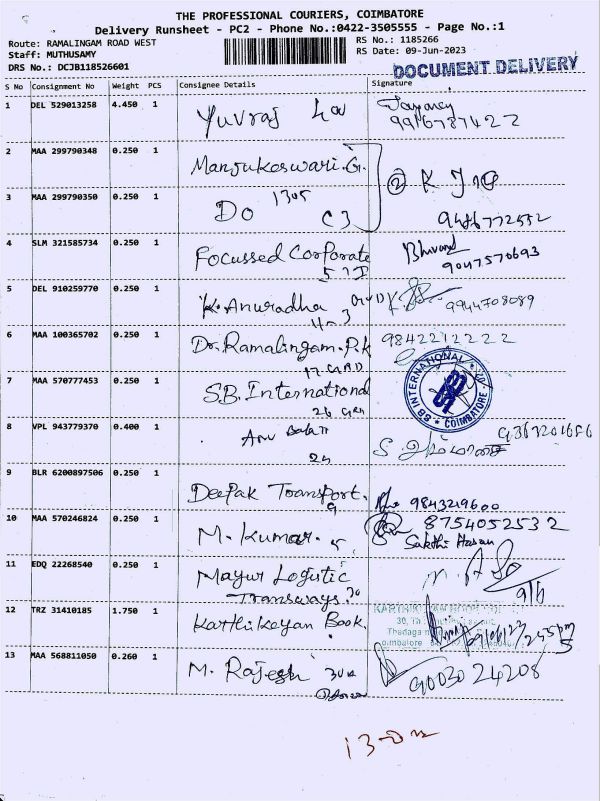 THE PROFESSIONAL COURIERS, COIMBATORE
Delivery Runsheet - PC2 - Phone No.:0422-3505555 - Page No.:1
Route: RAMALINGAM ROAD WEST
Staff: MUTHUSAMY
DRS No.: DCJB118526601
RS No.: 1185266
RS Date: 09-Jun-2023
DOCUMENT DELIVERY
S No Consignment No Weight PCS Consignee Details Signature
1 DEL 529013258 4.450 1 Yuvraj
9916787422
2 MAA 299790348 0.250 1 Manjukeswari.G.
3 MAA 299790350 0.250 1 Do 1305 C3
② K
9486772552
4 SLM 321585734 0.250 1 Focussed Corporate
9047570693
5 DEL 910259770 0.250 1 K. Anuradha
4-3
9944708089
6 MAA 100365702 0.250 1 Dr. Ramalingam. P.K
9842212222
7 MAA 570777453 0.250 1 S.B. International
SB INTERNATIONAL
COIMBATORE
8 VPL 943779370 0.400 1
9 BLR 6200897506 0.250 1 Deepak Transport.
9
9843219600
10 MAA 570246824 0.250 1 M. Kumar. 5
8754052532
Sakthi Hasan
11 EDQ 22268540 0.250 1 Mayur Logistic
Transways. 30
9/6
12 TRZ 31410185 1.750 1 Karthikeyan Book.
13 MAA 568811050 0.260 1 M. Rajesh
9003024208